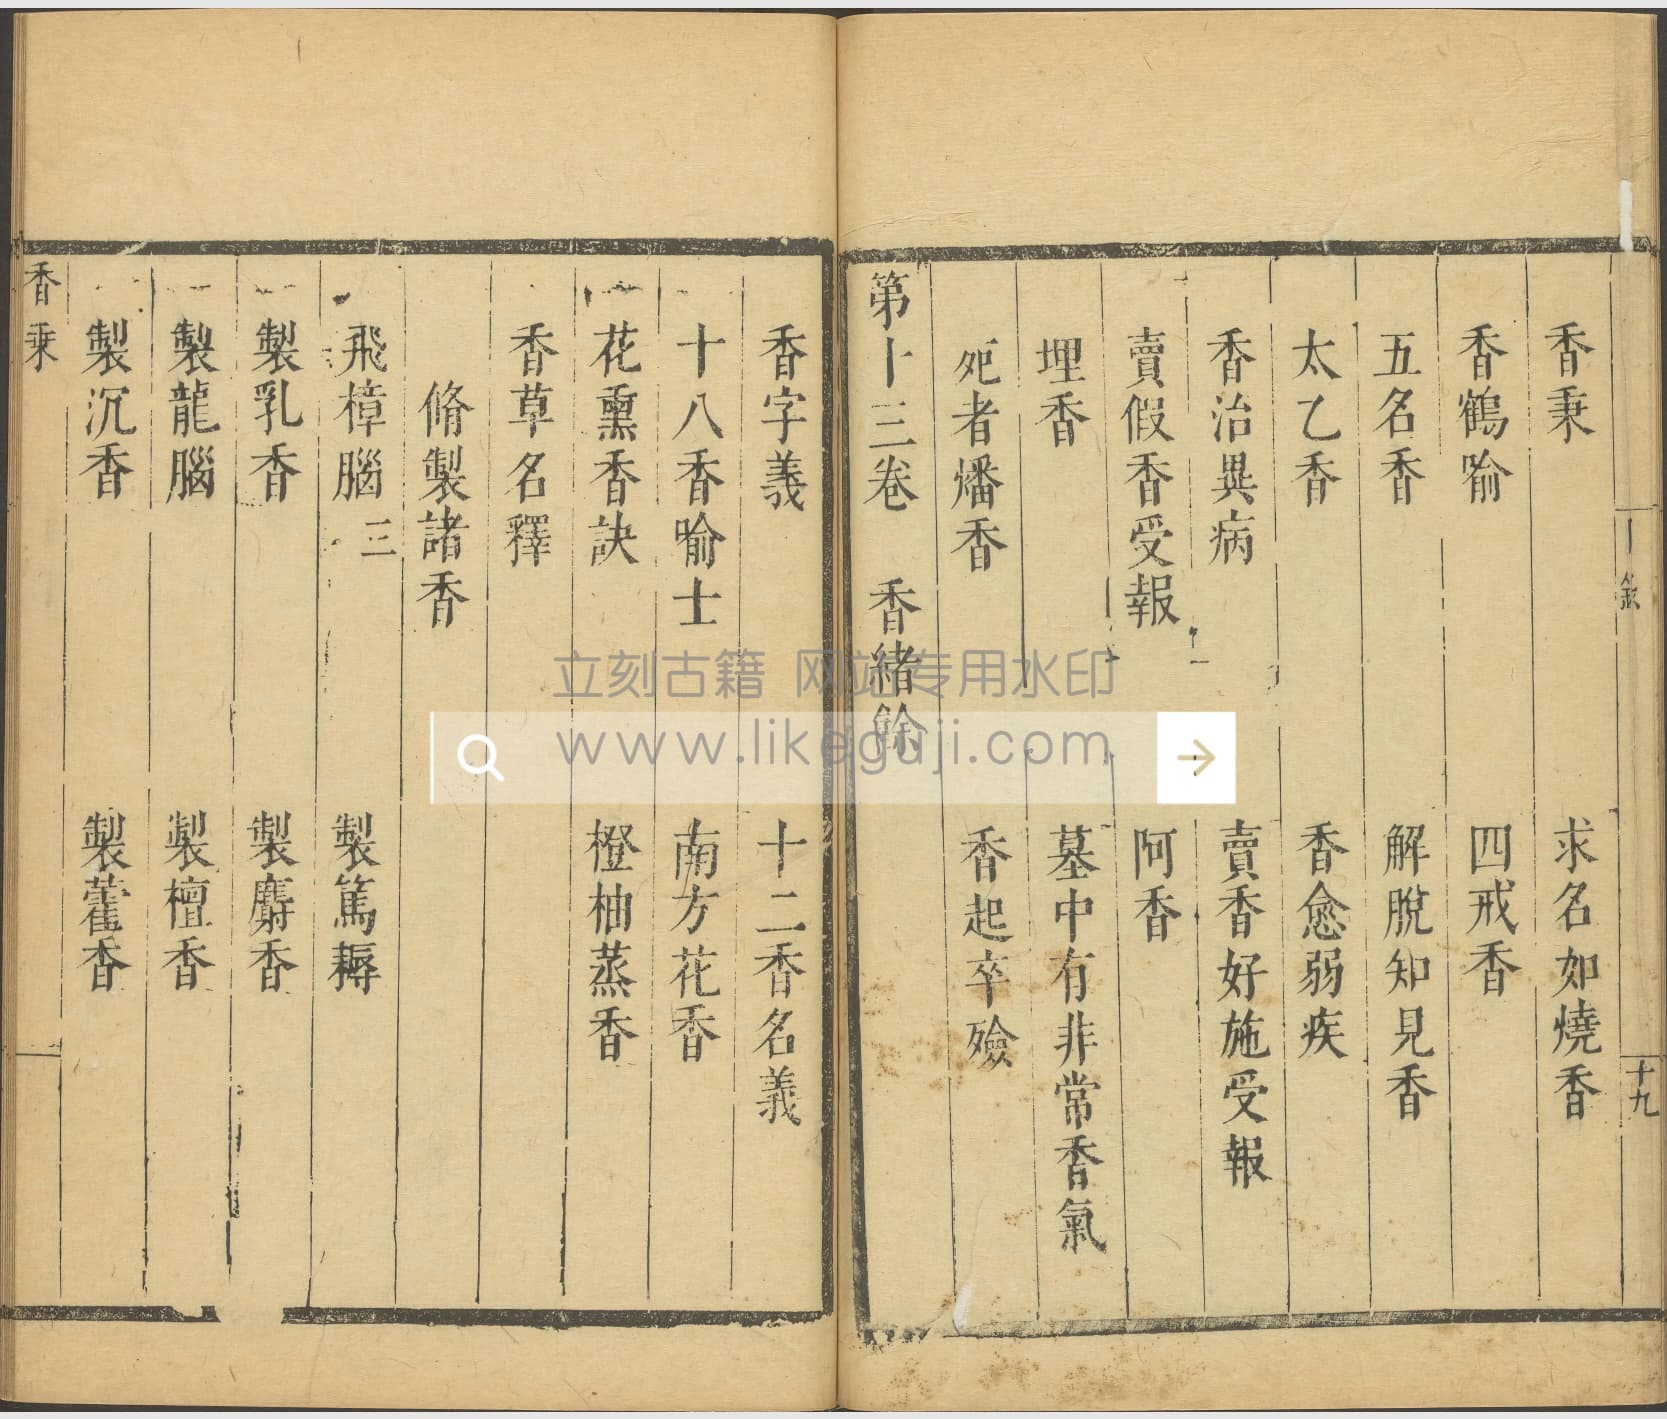 録
十九
香秉　求名如燒香
香鶴喻　四戒香
五名香　解脫知見香
太乙香　香愈弱疾
香治異病　賣香好施受報
賣假香受報　阿香
埋香　墓中有非常香氣
死者燔香　香起卒殮
第十三卷　香緒餘
香字義　十二香名義
十八香喻士　南方花香
花熏香訣　橙柚蒸香
香草名釋
脩製諸香
飛樟腦 三　製篤耨
製乳香　製麝香
製龍腦　製檀香
製沉香　製藿香
香乘
立刻古籍 网站专用水印
www.likeguji.com